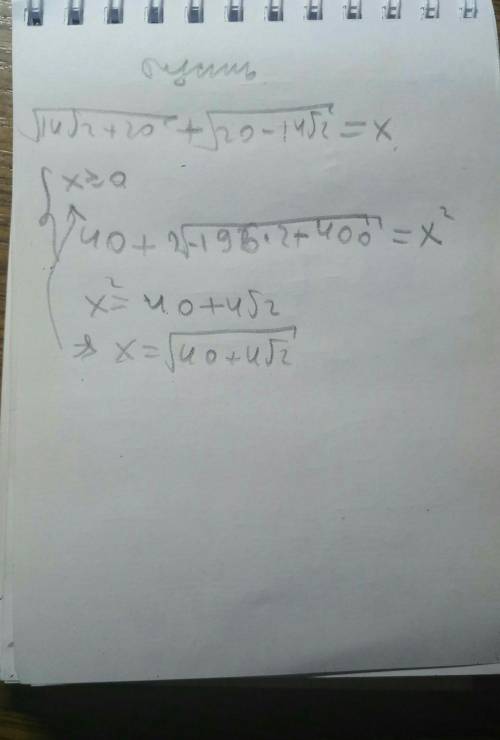 Пусть
√(14√2+20) + √(20-14√2) = x
x ≥ 0
40 + 2√(-196·2+400) = x²
x² = 40+4√2
x = √(40+4√2)